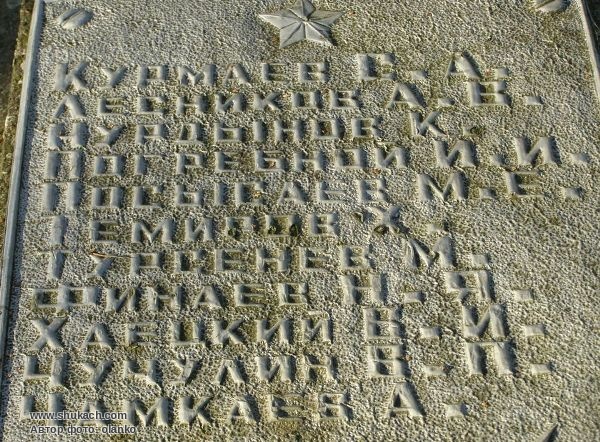 КУРМАЕВ С. А.
ЛЕСНИКОВ А. В.
НУРДЫНОВ К.
ПОГРЕБНОЙ И. И.
ПОСЫБАЕВ М. Е.
ТЕМИРОВ Х.
ТУРКЕНЕВ М.
ФИНАЕВ Н. Я.
ХАЕЦКИЙ В. И.
ЧУЧУЛИН В. П.
А.
www.shukach.com
Автор фото: olanko